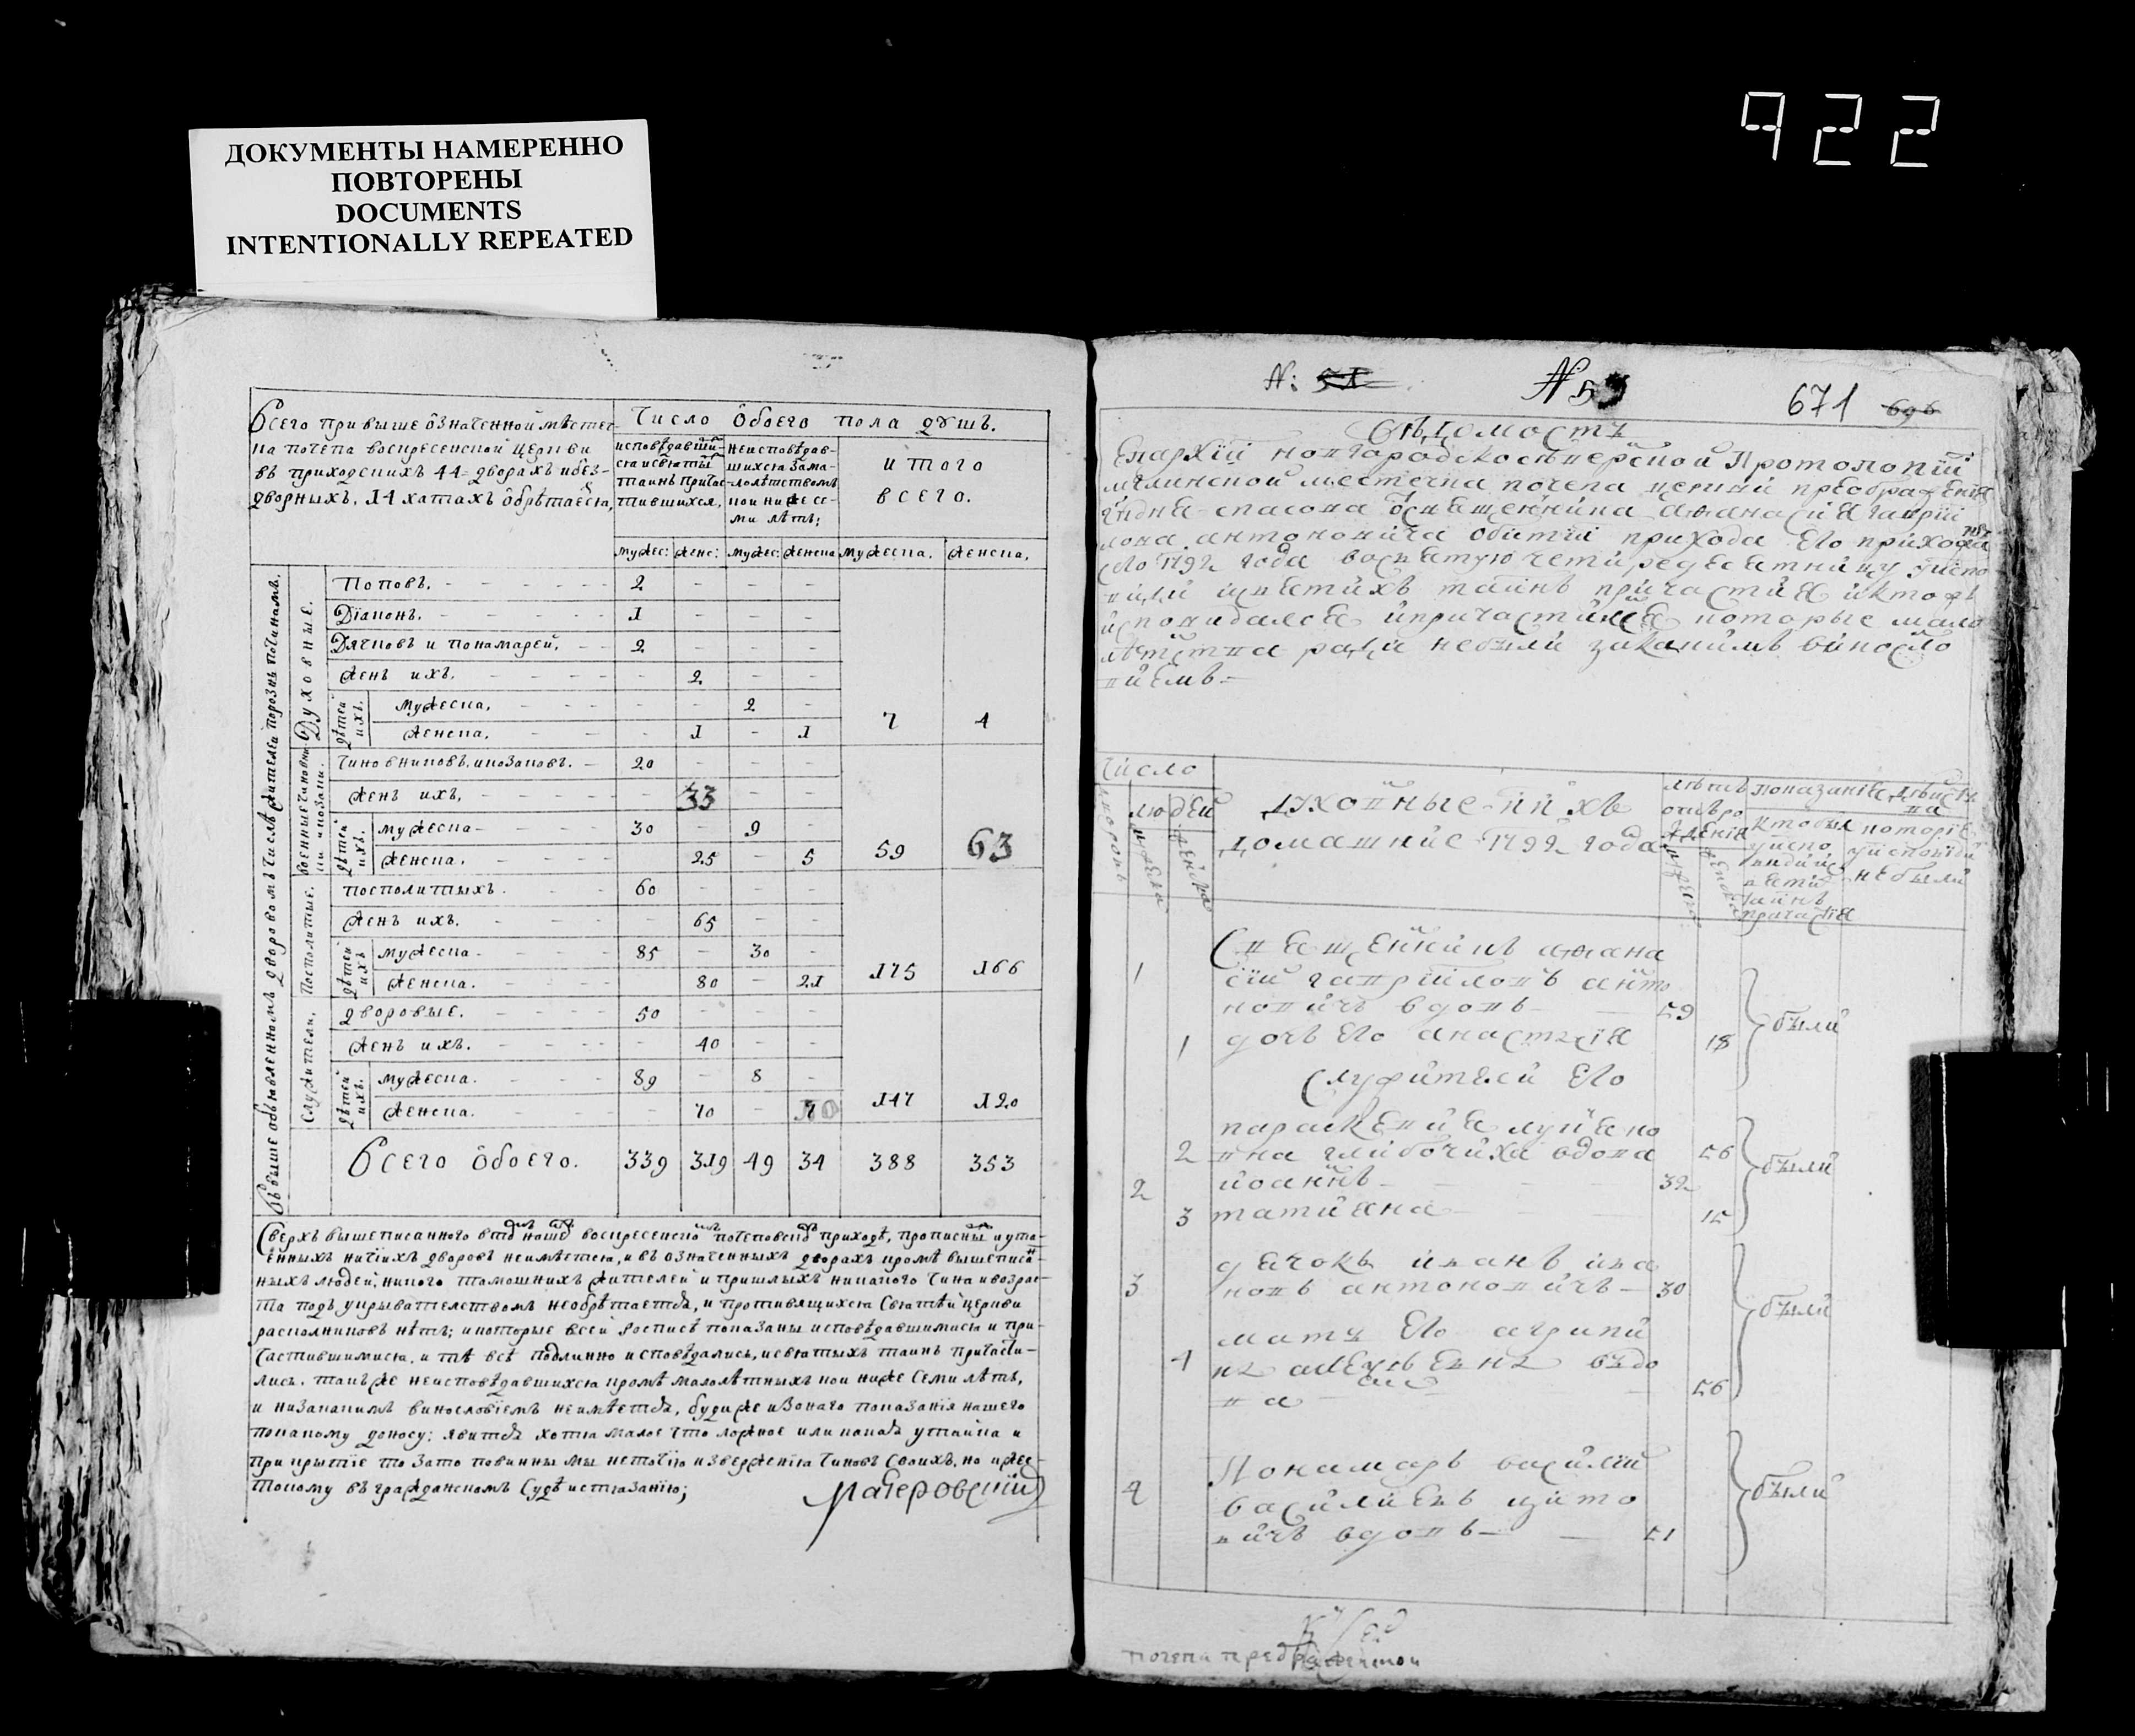 922
ДОКУМЕНТЫ НАМЕРЕННО
ПОВТОРЕНЫ
DOCUMENTS
INTENTIONALLY REPEATED
Всего при вышеозначенной мѣстеч-
ка почепа воскресенской церкви
въ приходскихъ 44 дворахъ и без-
дворныхъ, 14 хатахъ обрѣтается,
Число обоего пола душъ.
исповѣдавши-
ся и святы
таинъ причас-
тившихся,
неисповѣдав-
шихся зама-
лолѣтствомъ
кои ниже се-
ми лѣтъ;
итого
всего.
мужес: женс: мужес: женска мужеска. женска.
Въ выше объявленномъ дворовомъ числѣ жителей порознь починамъ.
Духовные.
Поповъ. 2
Діаконъ. 1
Дячковъ и пономарей. 2
Женъ ихъ. 2
дѣтей ихъ.
мужеска. 2
женска. 1 1 7 4
военные чиновни-
ки и козаки.
чиновниковъ и козаковъ. 20
Женъ ихъ. 33
дѣтей ихъ.
мужеска 30 9
женска. 25 5 59 63
Посполитые.
посполитыхъ. 60
Женъ ихъ. 65
дѣтей ихъ
мужеска 85 30
женска. 80 21 175 166
Служители.
дворовые. 50
Женъ ихъ. 40
дѣтей ихъ.
мужеска. 89 8
женска. 70 10 147 120
Всего обоего. 339 319 49 34 388 353
Сверхъ вышеписанного воскресенско почеповско приходѣ, прописны и ута-
енныхъ ничіихъ дворовъ неимѣется, и въ означенныхъ дворахъ кромѣ вышеписа-
ныхъ людей, никого тамошнихъ жителей и пришлыхъ никакого чина и возрас-
та подъ укрывателствомъ необрѣтается, и противящихся Святѣй церкви
расколниковъ нѣтъ; и которые всей росписѣ показаны исповѣдавшимися и при-
частившимися, и тѣ всѣ подлинно исповѣдались, и святыхъ таинъ причасти-
лись. также неисповѣдавшихся кромѣ малолѣтныхъ кои ниже семи лѣтъ,
и низакакимъ винословіемъ неимѣется, буди же изонаго показанія нашего
покакому доносу; явится хотя малое что ложное или какая утайка и
прикрытіе то зато повинны мы неточію изверженія чиновъ своихъ, но и жес-
токому въ гражданскомъ судѣ истязанію;
N: 51
N 53
671 696
Вѣдомость
Епархіи новгородскосѣверской Протопопіи
мглинской местечка почепа церкви преображенія
Гндня спасова священника афанасия гаврии
лова антоновича обители прихода Его
сего 1792 года восвятую четиредесятницу уиспо
вѣди исвятихъ таинъ причастия иктожъ
исповидался и причастился которые мало
лѣтства ради небыли
виемъ
Число
людей
дворовъ
мужеска
женска
духовные и ихъ
домашние 1792 года
лѣтъ
отъ ро
ждения
мужеска
женска
показание дѣйств
ва
кто былъ
уиспо
вѣди и с
вятих
таинъ
причастія
которіе
уисповѣди
небыли
1 Священникъ афана
сій гавріиловъ анто
новичъ вдовъ 59
1 дочъ Его анастасія 18
были
Служители Его
параскевия лукяно
2 вна глибочиха вдова 56
2 иоаннъ 32
3 татияна 15
были
дячокъ иванъ ива
3 новъ антоновичъ 30
мать Его агрипи
4 на вдо
ва 56
были
Пономаръ василій
4 василиевъ
вичъ вдовъ 51
были